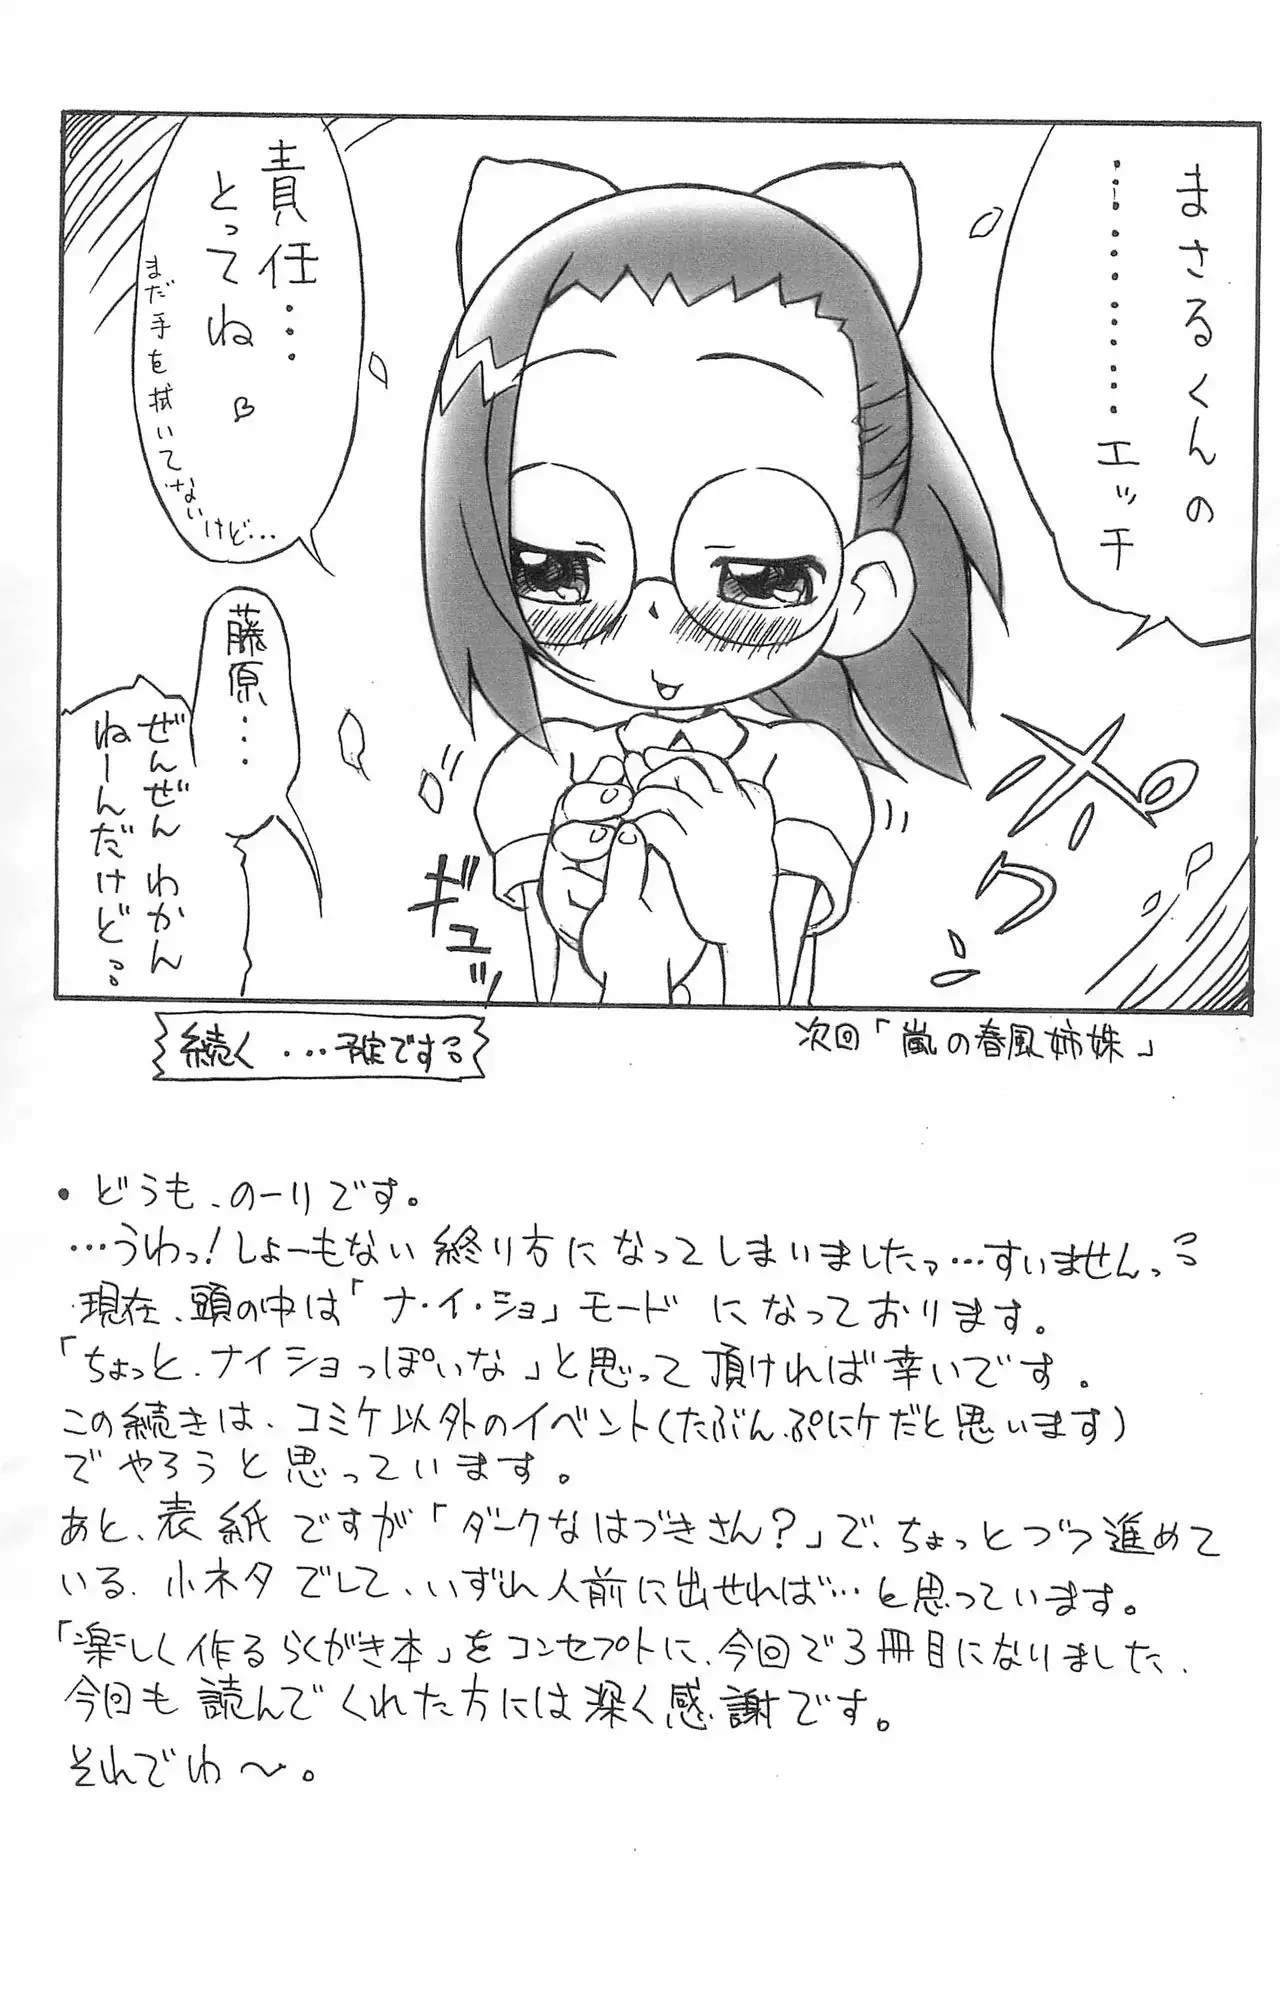 まさるくんの
………………エッチ
責任…
とってね♡
まだ手を拭いてないけど…
藤原……
ぜんぜんわかん
ねーんだけど…
ギュッ
ドクン
次回「嵐の春風姉妹」
続く…予定です
・どうも、のーりです。
…うわっ!しょーもない終り方になってしまいましたっ…すいませんっ
現在、頭の中は「ナ・イ・ショ」モードになっております。
「ちょっと、ナイショっぽいな」と思って頂ければ幸いです。
この続きは、コミケ以外のイベント(たぶん、ぷにケだと思います)
でやろうと思っています。
あと、表紙ですが「ダークなはづきさん?」で、ちょっとづつ進めて
いる、小ネタでして、いずれ人前に出せれば…と思っています。
「楽しく作るらくがき本」をコンセプトに、今回で3冊目になりました、
今回も読んでくれた方には深く感謝です。
それでわ〜。